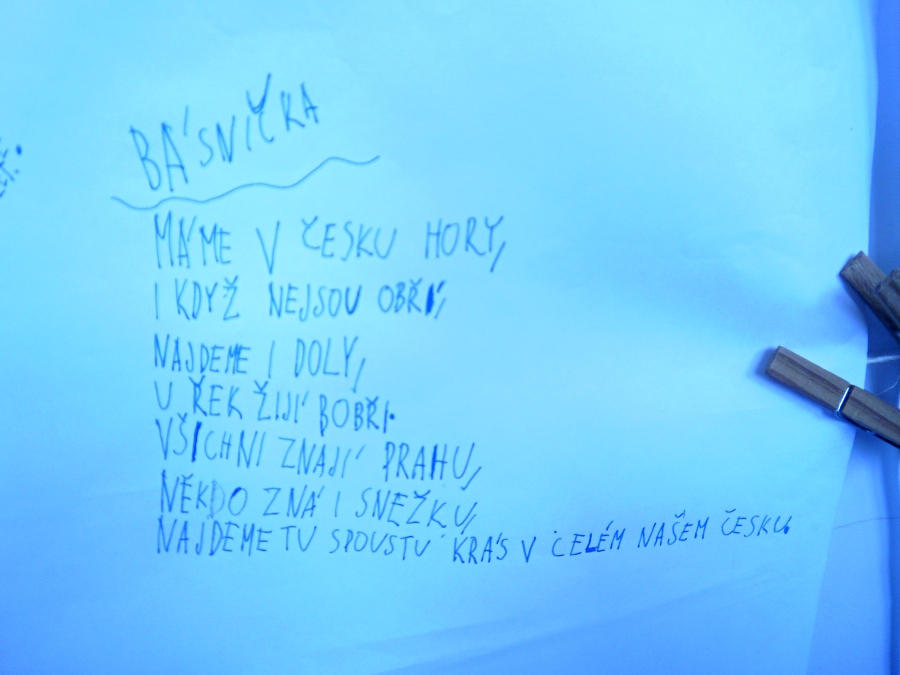 BÁSNIČKA
MÁME V ČESKU HORY,
I KDYŽ NEJSOU OBŘÍ,
NAJDEME I DOLY,
U ŘEK ŽIJÍ BOBŘI.
VŠICHNI ZNAJÍ PRAHU,
NĚKDO ZNÁ I SNEŽKU,
NAJDEME TU SPOUSTU KRÁS V CELÉM NAŠEM ČESKU.